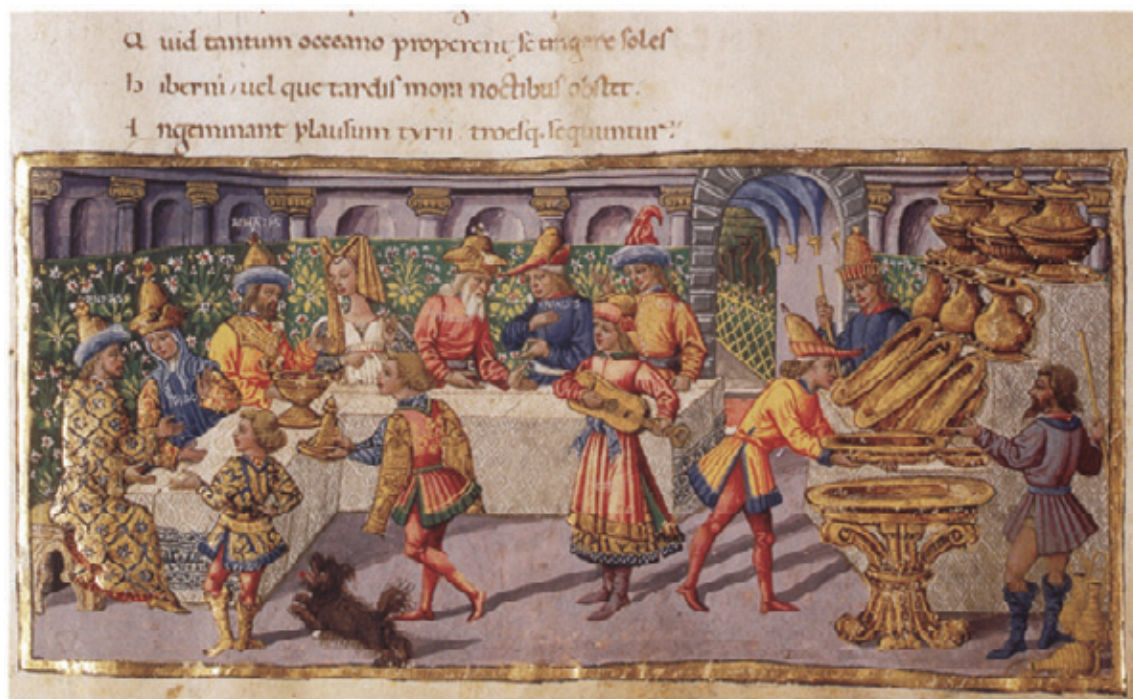 Q uid tantum occeano properent se tingere soles
h iberni, uel que tardis mora noctibus obstet.
I ngemmant plausum tyrii troesq. sequuntur.